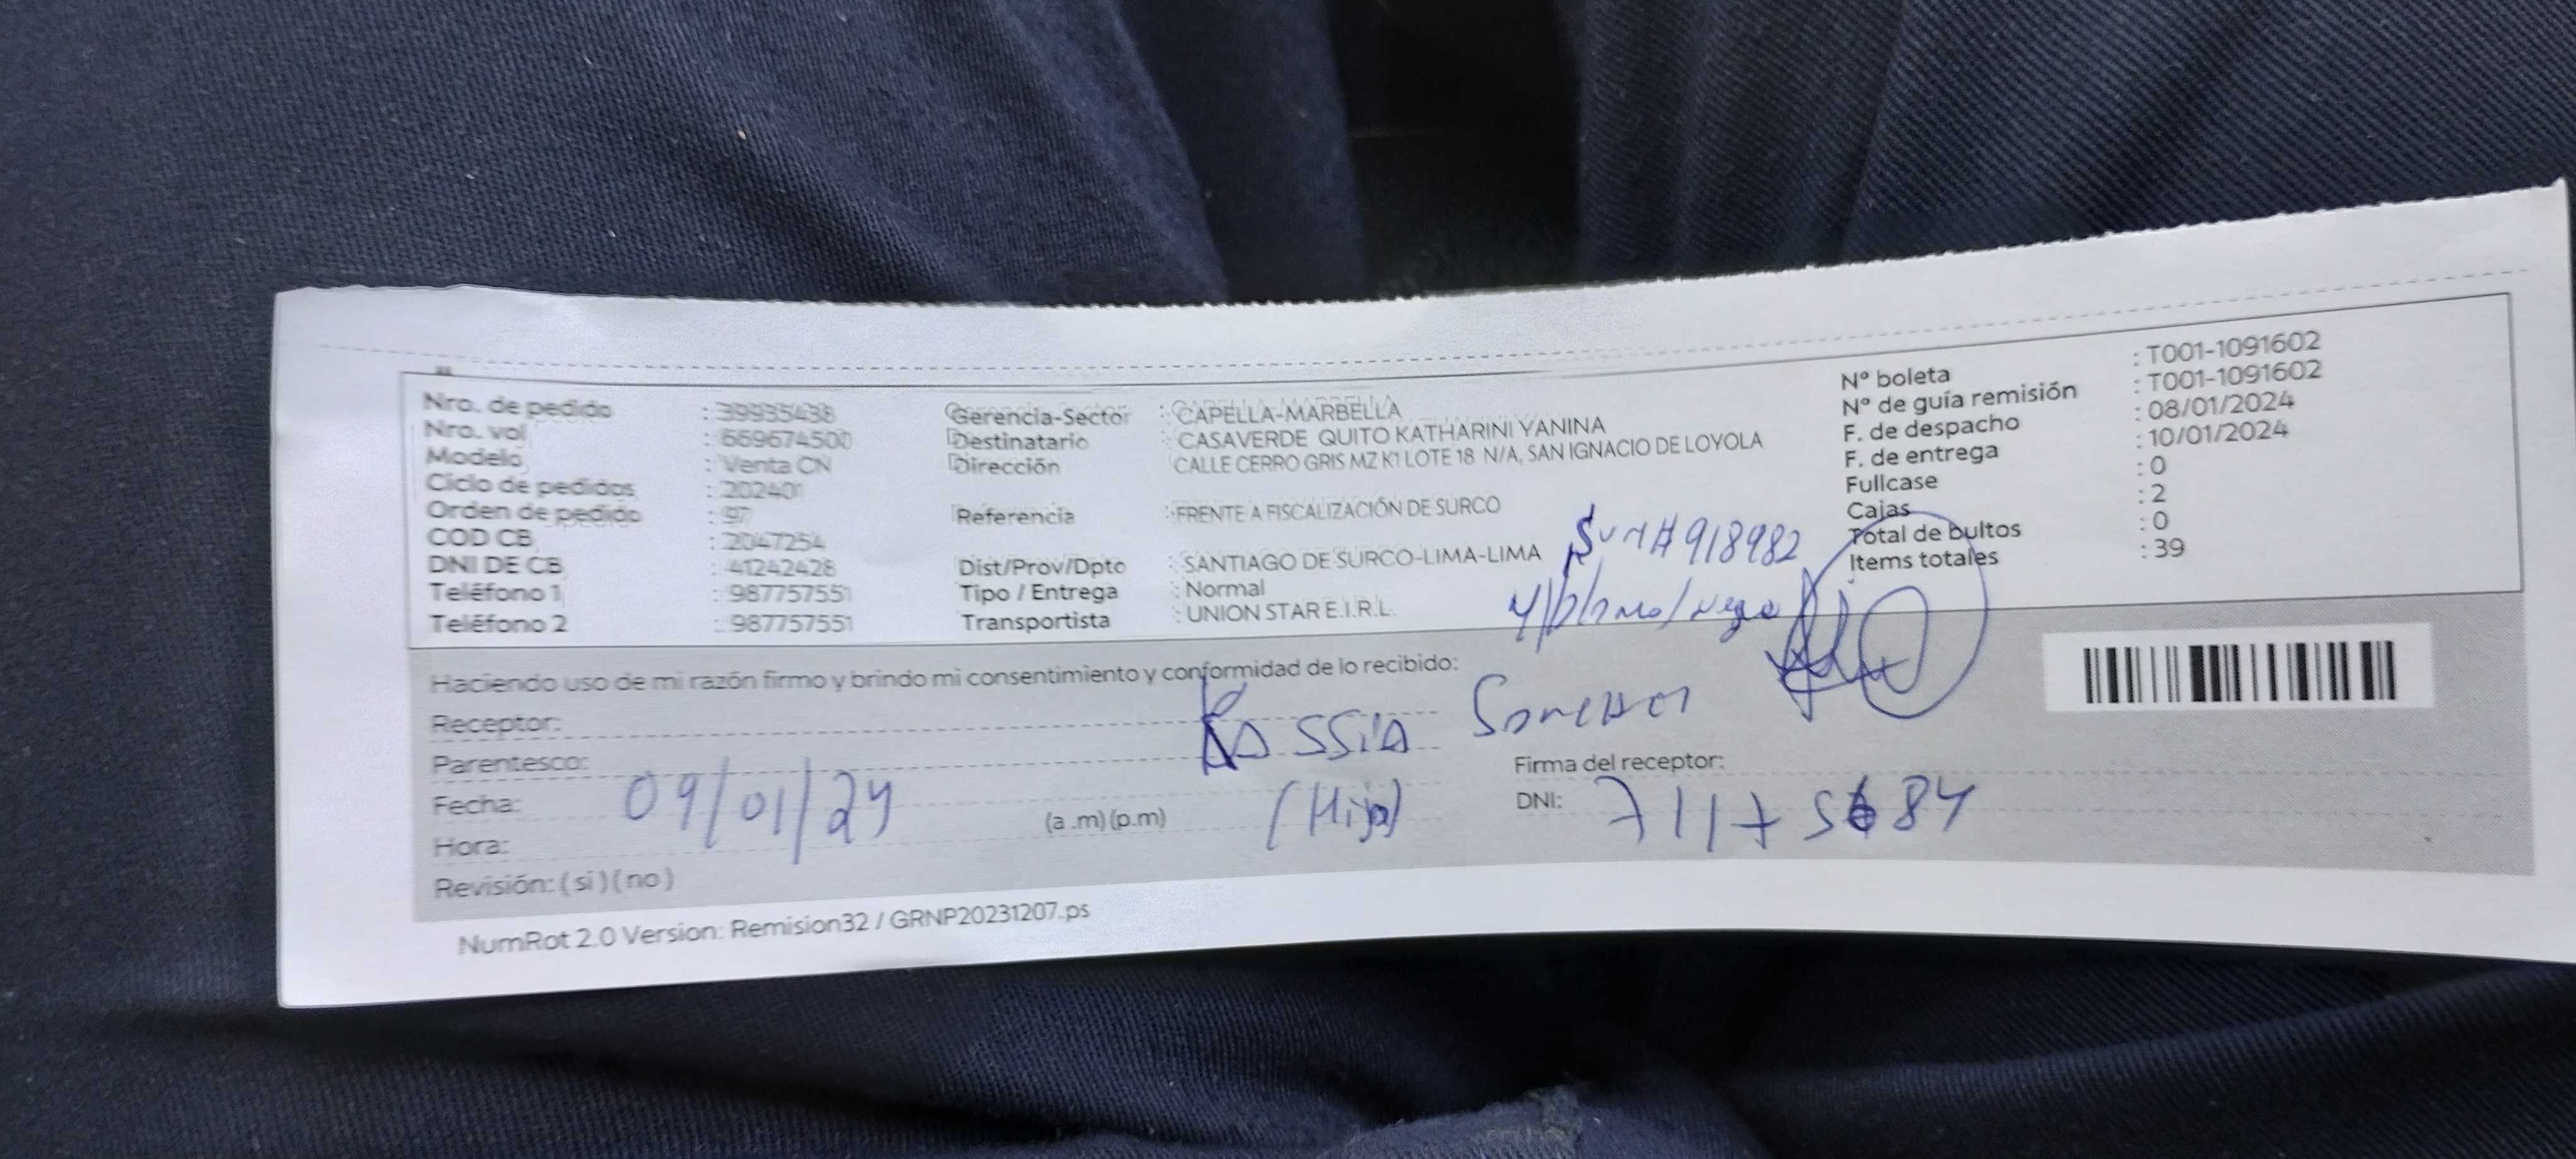 Nro. de pedido : 39935438
Nro. vol : 669674500
Modelo : Venta CN
Ciclo de pedidos : 202401
Orden de pedido : 97
COD CB : 2047254
DNI DE CB : 41242428
Teléfono 1 : 987757551
Teléfono 2 : 987757551
Gerencia-Sector : CAPELLA-MARBELLA
Destinatario : CASAVERDE QUITO KATHARINI YANINA
Dirección : CALLE CERRO GRIS MZ K1 LOTE 18 N/A, SAN IGNACIO DE LOYOLA
Referencia : FRENTE A FISCALIZACIÓN DE SURCO
Dist/Prov/Dpto : SANTIAGO DE SURCO-LIMA-LIMA
Tipo / Entrega : Normal
Transportista : UNION STAR E.I.R.L.
N° boleta : T001-1091602
N° de guía remisión : T001-1091602
F. de despacho : 08/01/2024
F. de entrega : 10/01/2024
Fullcase : 0
Cajas : 2
Total de bultos : 0
Items totales : 39
918982
Haciendo uso de mi razón firmo y brindo mi consentimiento y conformidad de lo recibido:
Receptor: KASSIA
Parentesco: (Hija)
Fecha: 09/01/24
Hora: (a .m) (p.m)
Revisión: ( si ) ( no )
Firma del receptor:
DNI: 71175684
NumRot 2.0 Version: Remision32 / GRNP20231207.ps